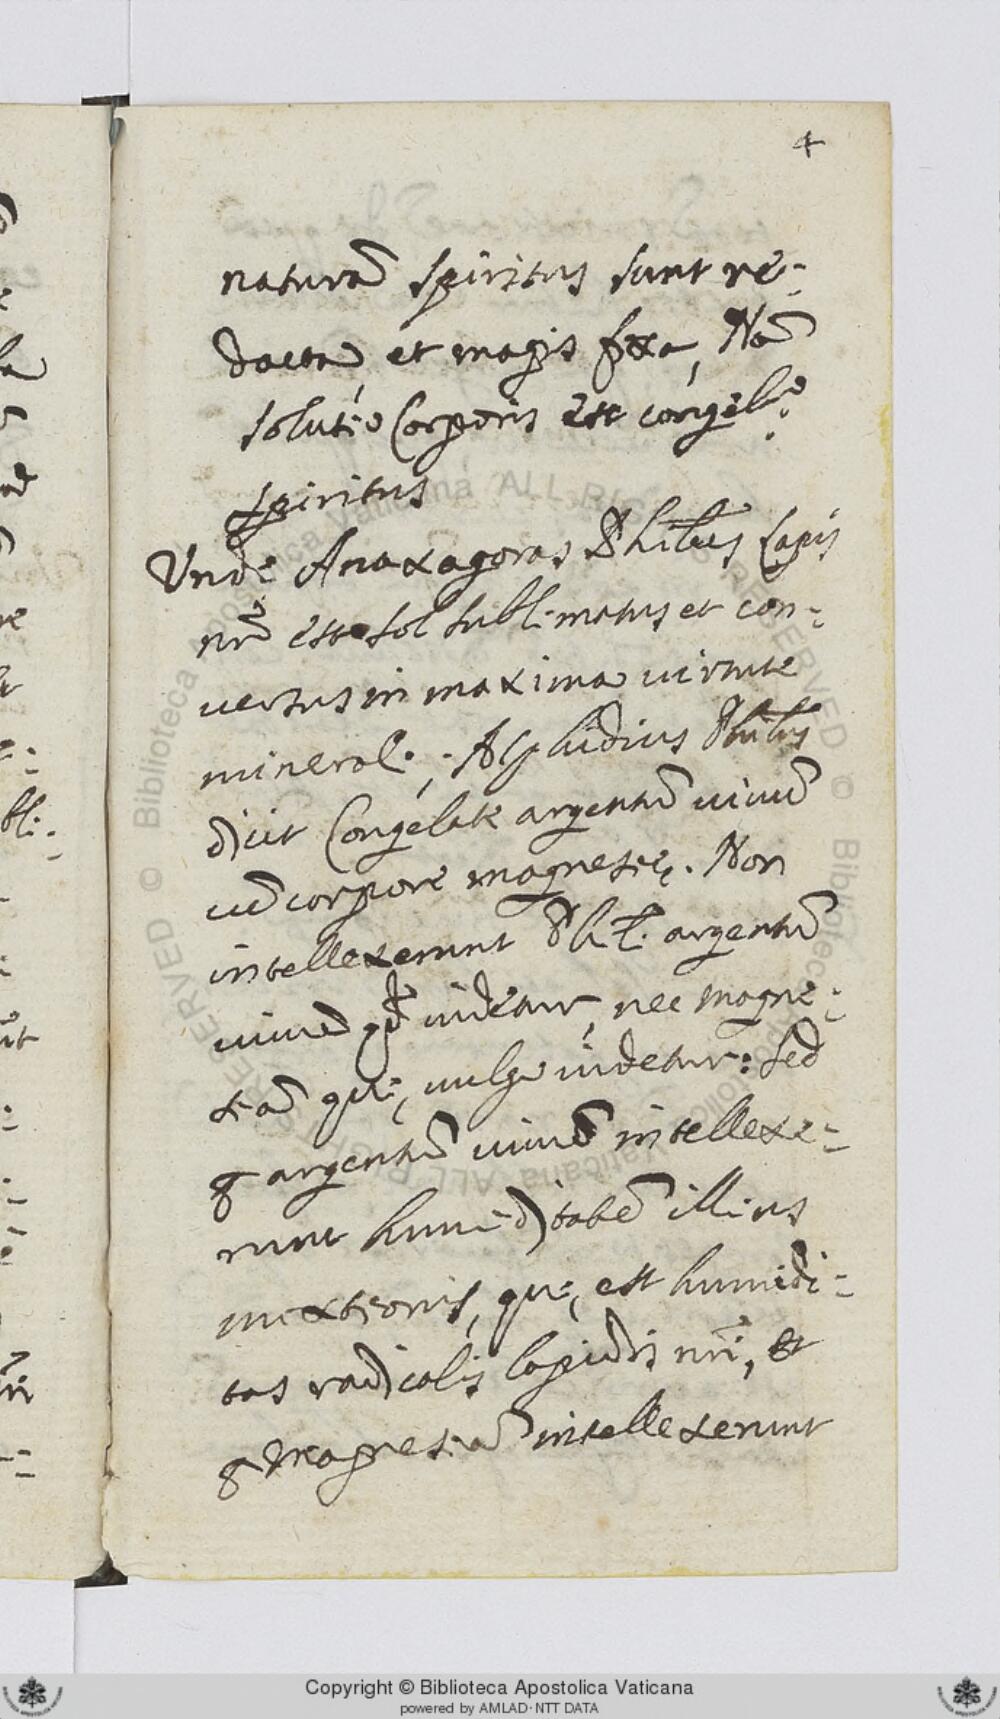 4
naturā spiritus sunt re-
dacta, et magis fixa, Nā
solutio Corporis est congel.º
spiritus
Unde Anaxagoras Philūs Lapis
nr̄ est sol sublimatus et con-
uersus in maxima uirtute
mineral.
dicit Congelate argentū uiuū
cū corpore magnesię. Non
intellexerunt Phī. argentū
uiuū qđ uidetur, nec magne-
siā quę uulgo uidetur: sed
p argentū uiuū intellexe-
runt humiditatē illius
mixtionis, quę est humidi-
tas radicalis lapidis nr̄i, et
p Magnesiā intellexerunt
Copyright © Biblioteca Apostolica Vaticana
powered by AMLAD·NTT DATA